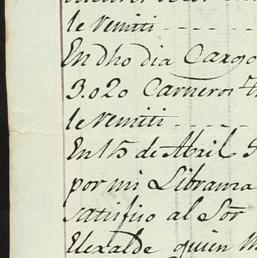 le Remiti - - - -
En dho dia Cargo
3.020 Carneros
le Remiti - - - -
En 15 de Abril
por mi Libranza
satisfizo al Sor
Elexalde quien